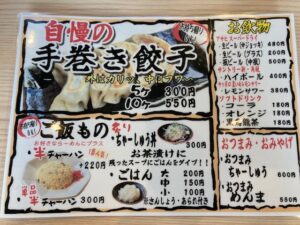 自慢の
手巻き餃子
外はカリッ、中はフワ〜
5ヶ 300円
10ヶ 550円
ご飯もの
お好きならーめんにプラス
半チャーハン
+220円
単品
半チャーハン 300円
炙り
ちゃーしゅう丼 300円
お茶漬けに
残ったスープにごはんをダイブ!!
ごはん 大 200円
中 150円
小 100円
※さんしょう・あられ付き
お飲物
アサヒスーパードライ
生ビール(中ジョッキ) 480円
生ビール(グラス) 200円
瓶ビール(中瓶) 500円
ハイボール 400円
レモンサワー 380円
ソフトドリンク
コーラ 180円
オレンジ 180円
黒烏龍茶 180円
おつまみ・おみやげ
おつまみ
ちゃーしゅう 600円
おつまみ
めんま 550円